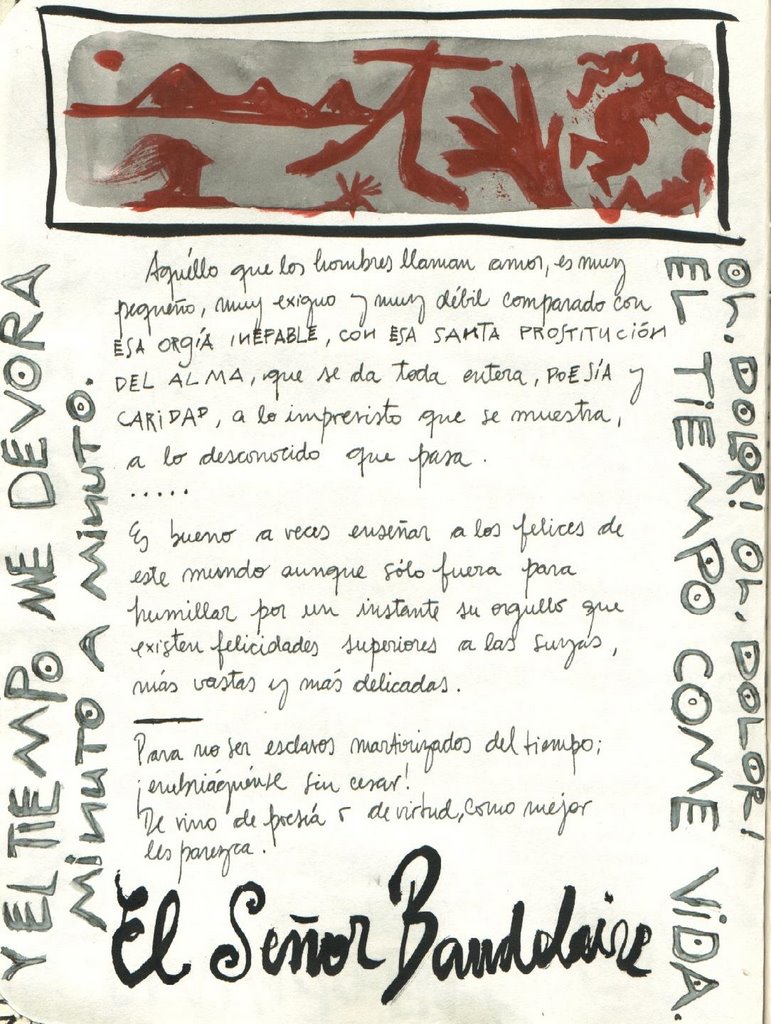 Aquéllo que los hombres llaman amor, es muy
pequeño, muy exiguo y muy débil comparado con
ESA ORGÍA INEFABLE, CON ESA SANTA PROSTITUCIÓN
DEL ALMA, que se da toda entera, POESÍA y
CARIDAD, a lo imprevisto que se muestra,
a lo desconocido que pasa.
.....
Es bueno a veces enseñar a los felices de
este mundo aunque sólo fuera para
humillar por un instante su orgullo que
existen felicidades superiores a las suyas,
más vastas y más delicadas.
Para no ser esclavos martirizados del tiempo;
¡embriáguense sin cesar!
De vino de poesía o de virtud, como mejor
les parezca.
El Señor Baudelaire
Y EL TIEMPO ME DEVORA
MINUTO A MINUTO.
OH, DOLOR! OH, DOLOR!
EL TIEMPO COME VIDA.